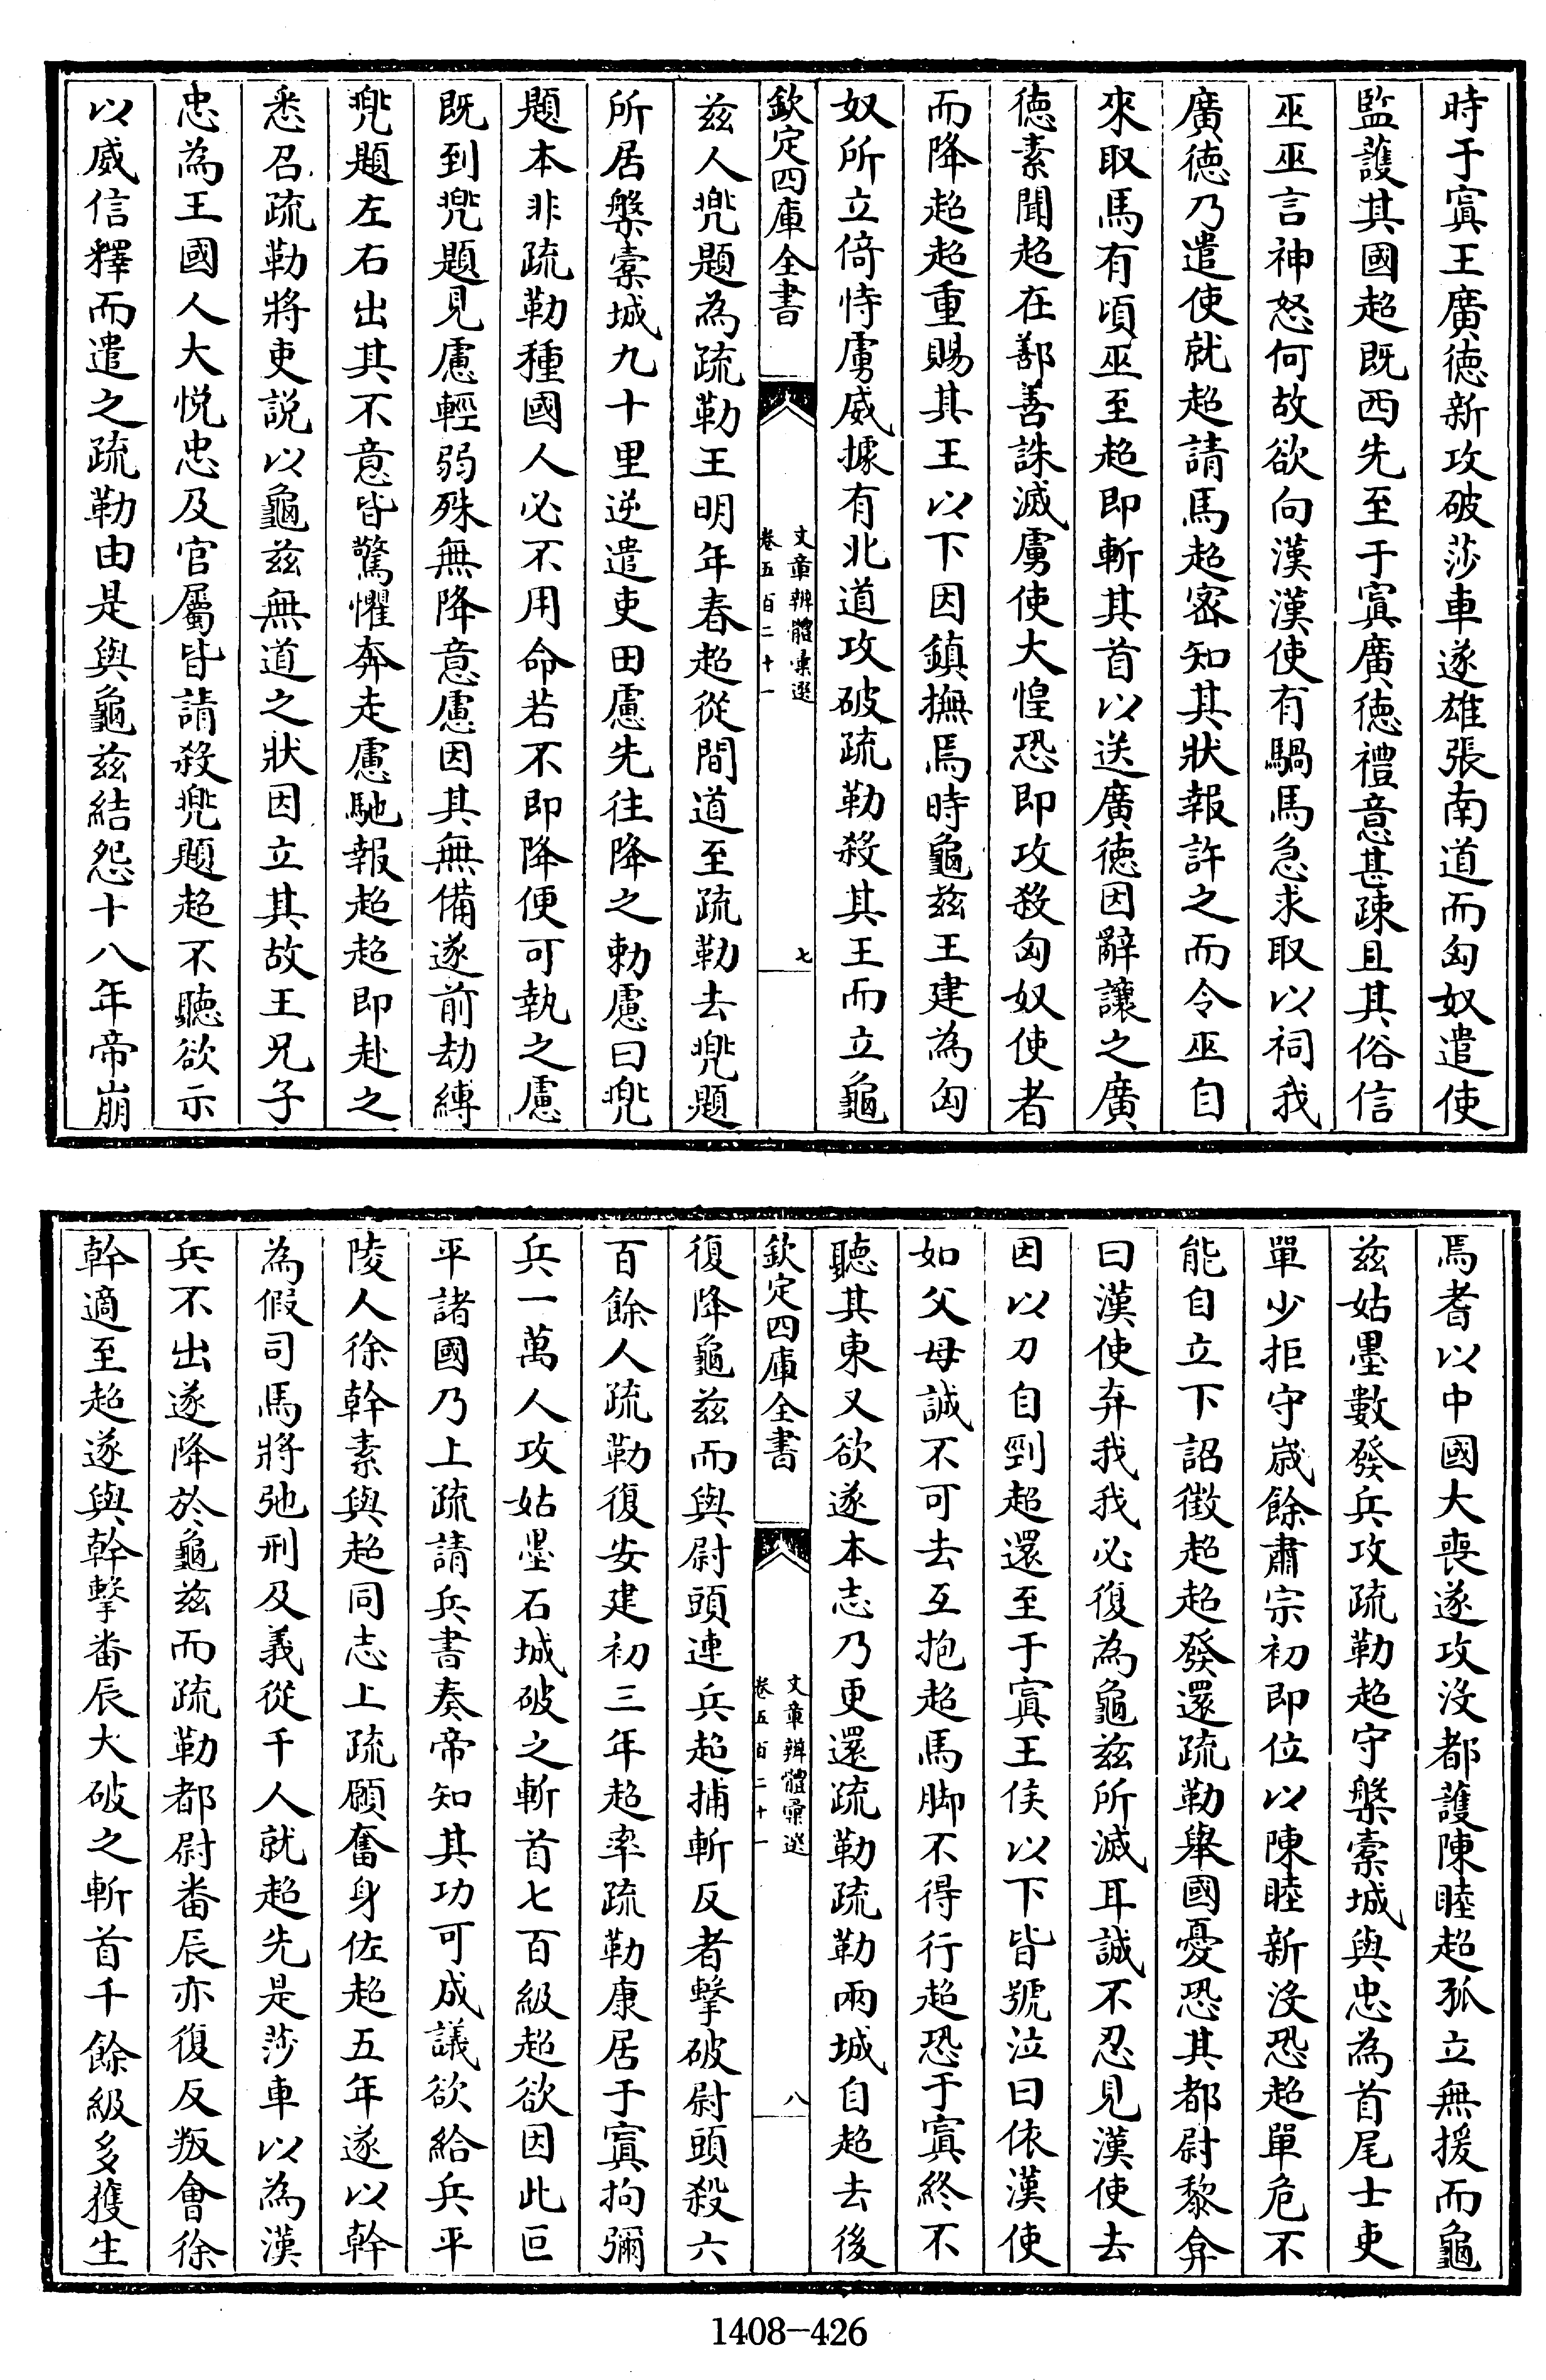 時于寘王廣徳新攻破莎車遂雄張南道而匈奴遣使
監護其國超既西先至于寘廣徳禮意甚疎且其俗信
巫巫言神怒何故欲向漢漢使有騧馬急求取以祠我
廣徳乃遣使就超請馬超宻知其狀報許之而令巫自
來取馬有頃巫至超即斬其首以送廣徳因辭讓之廣
徳素聞超在鄯善誅滅虜使大惶恐即攻殺匈奴使者
而降超超重賜其王以下因鎮撫焉時龜兹王建為匈
奴所立倚恃虜威據有北道攻破疏勒殺其王而立龜
欽定四庫全書
文章辨體彚選
卷五百二十一
七
兹人兠題為疏勒王明年春超從間道至疏勒去兠題
所居槃橐城九十里逆遣吏田慮先往降之勅慮曰兠
題本非疏勒種國人必不用命若不即降便可執之慮
既到兠題見慮輕弱殊無降意慮因其無備遂前劫縛
兠題左右出其不意皆驚懼奔走慮馳報超超即赴之
悉召疏勒將吏説以龜兹無道之狀因立其故王兄子
忠為王國人大悦忠及官屬皆請殺兠題超不聽欲示
以威信釋而遣之疏勒由是與龜兹結怨十八年帝崩
焉耆以中國大喪遂攻没都護陳睦超孤立無援而龜
兹姑墨數發兵攻疏勒超守槃橐城與忠為首尾士吏
單少拒守嵗餘肅宗初即位以陳睦新没恐超單危不
能自立下詔徵超超發還疏勒舉國憂恐其都尉黎弇
曰漢使弃我我必復為龜兹所滅耳誠不忍見漢使去
因以刀自剄超還至于寘王侯以下皆號泣曰依漢使
如父母誠不可去互抱超馬脚不得行超恐于寘終不
聽其東又欲遂本志乃更還疏勒疏勒兩城自超去後
欽定四庫全書
文章辨體彚選
卷五百二十一
八
復降龜兹而與尉頭連兵超捕斬反者擊破尉頭殺六
百餘人疏勒復安建初三年超率疏勒康居于寘拘彌
兵一萬人攻姑墨石城破之斬首七百級超欲因此叵
平諸國乃上疏請兵書奏帝知其功可成議欲給兵平
陵人徐幹素與超同志上疏願奮身佐超五年遂以幹
為假司馬將弛刑及義從千人就超先是莎車以為漢
兵不出遂降於龜兹而疏勒都尉畨辰亦復反叛會徐
幹適至超遂與幹擊畨辰大破之斬首千餘級多獲生
1408-426